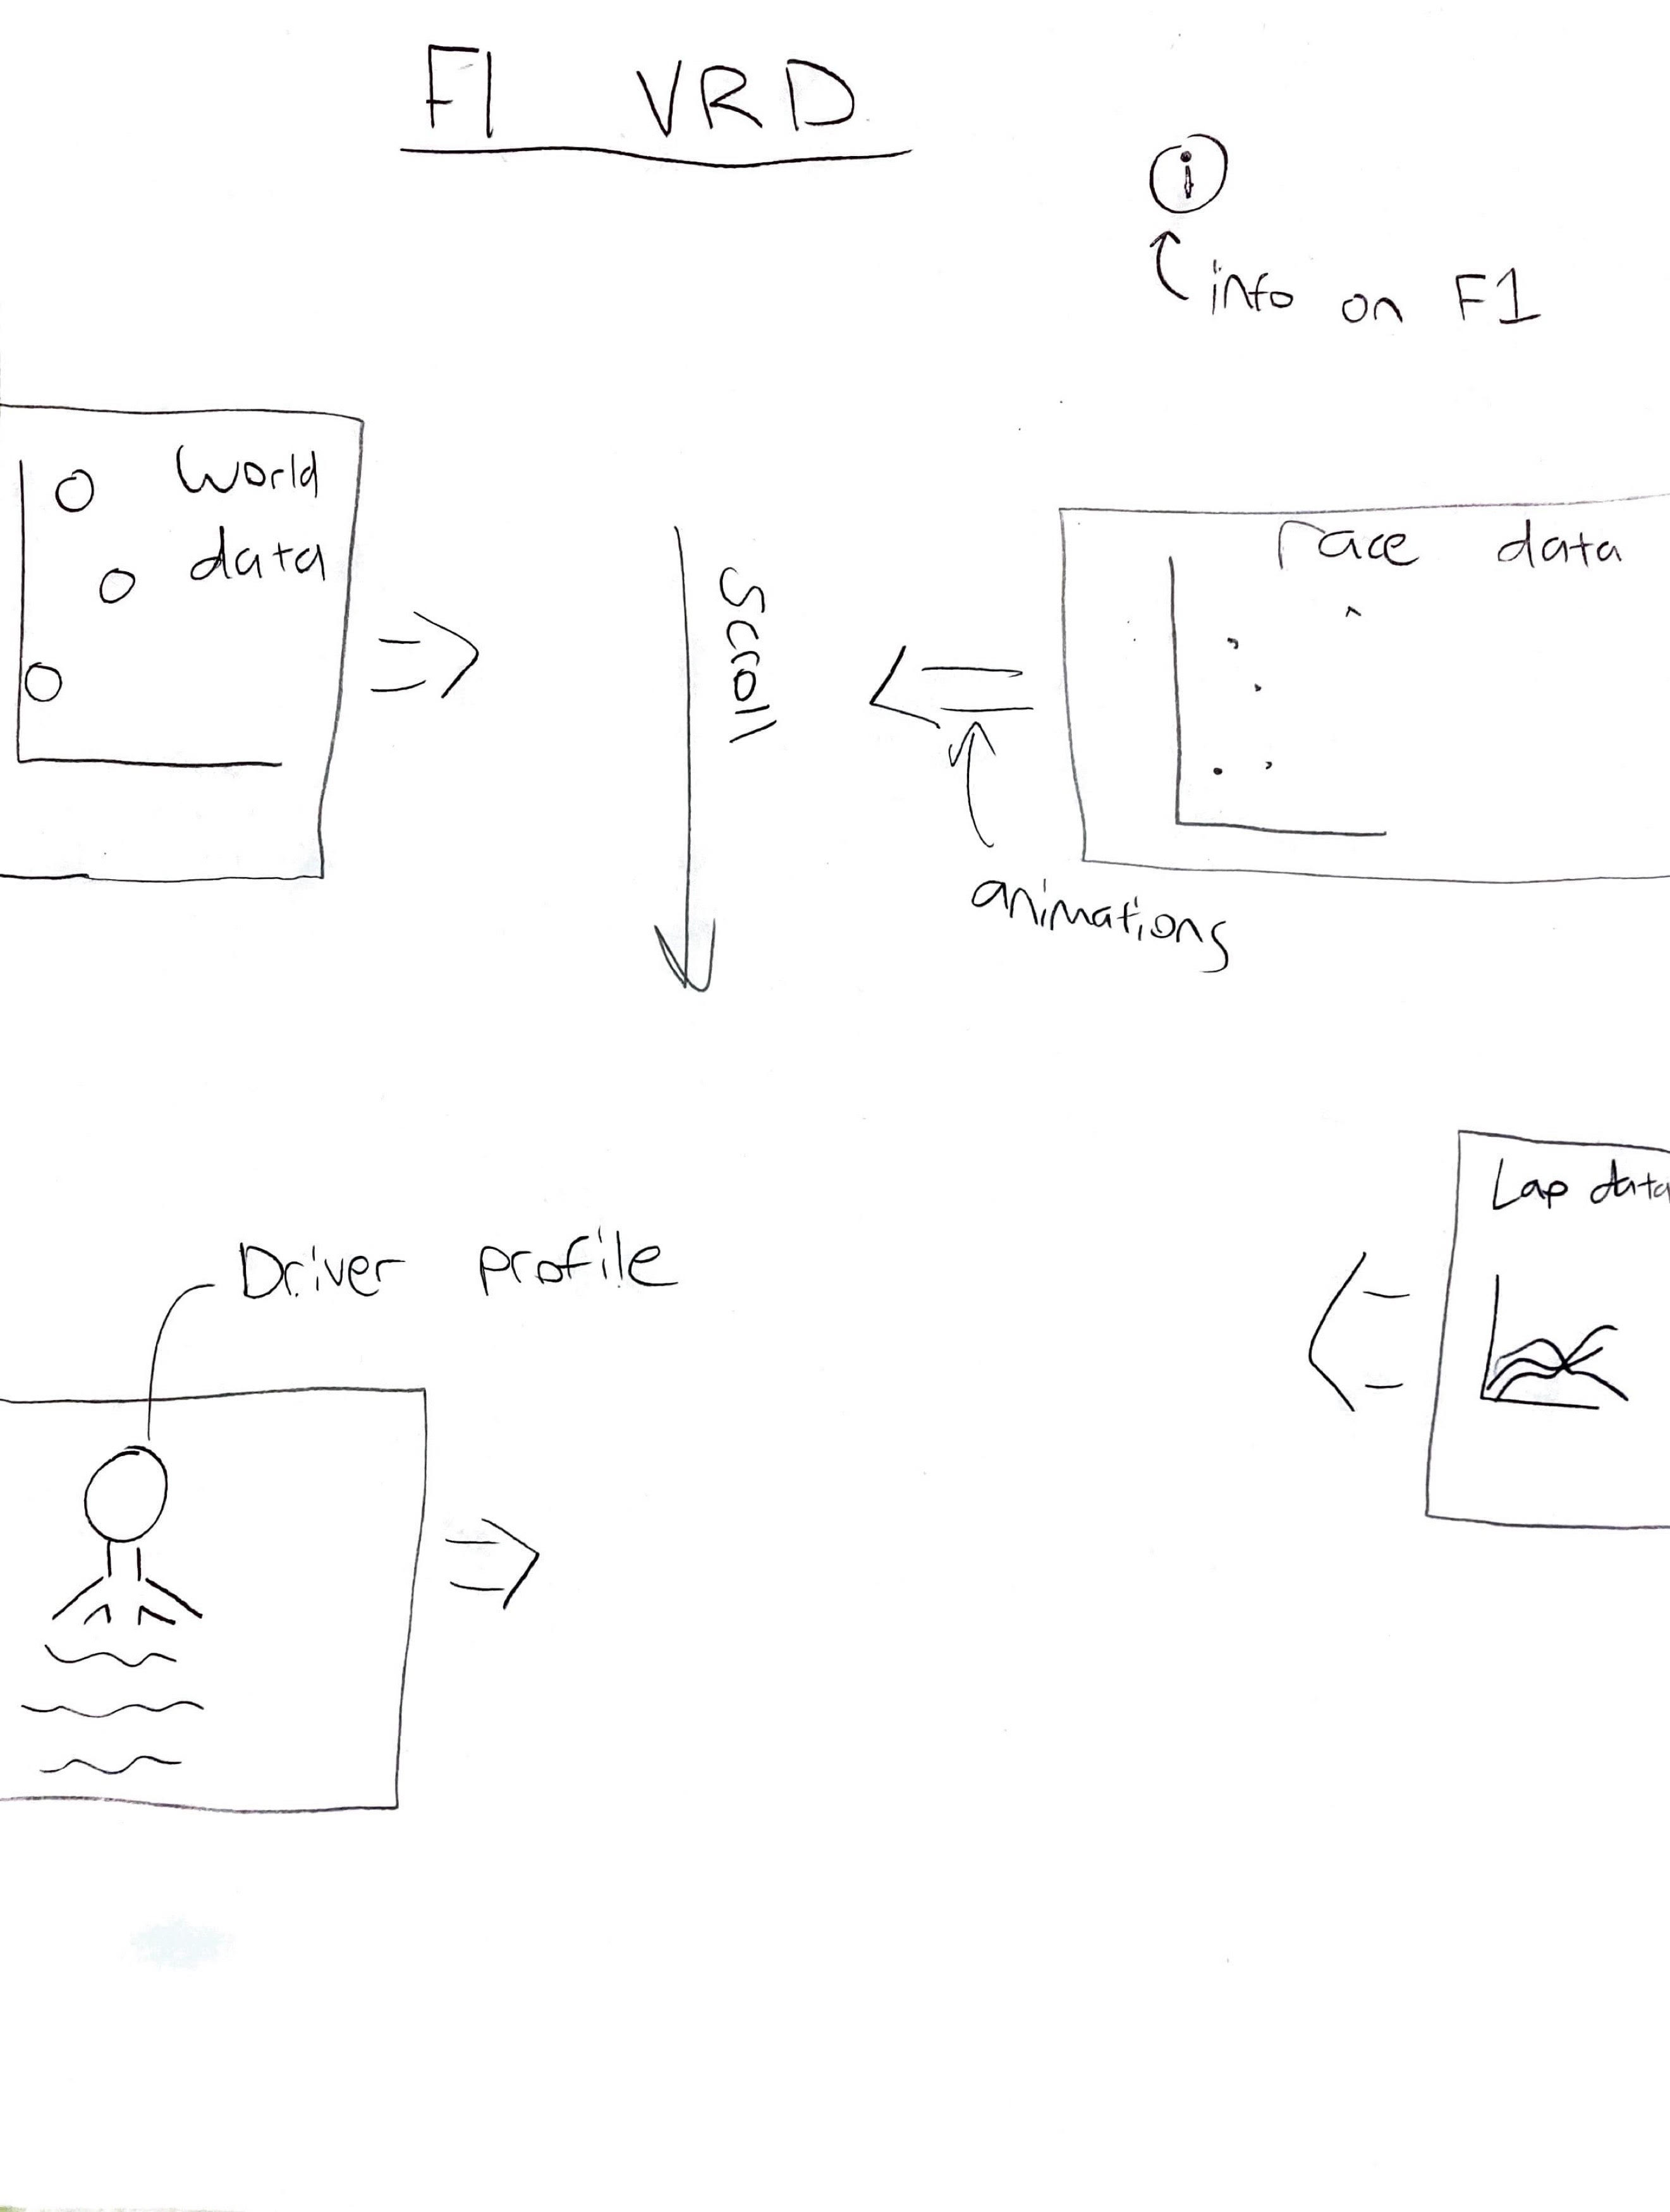 F1 VRD
i
info on F1
World
data
Scroll
race data
animations
Lap data
Driver profile